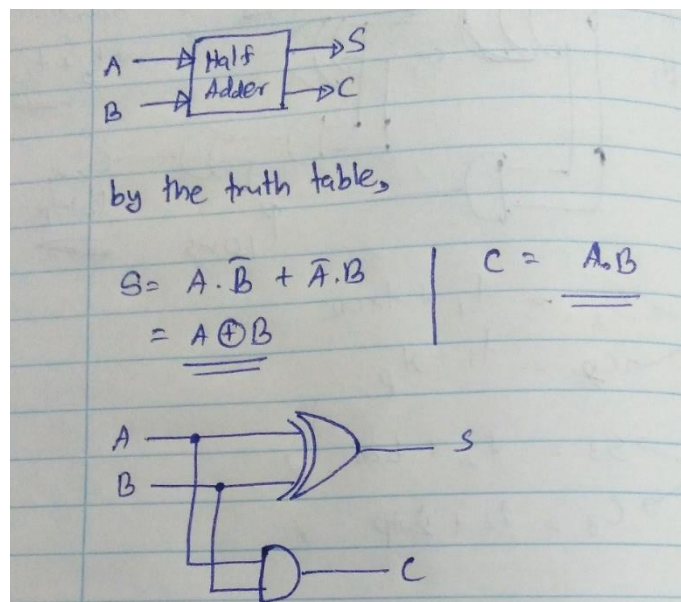 A Half S
B Adder C
by the truth table,
S = A . B̅ + A̅ . B
= A ⊕ B
C = A . B
A S
B
C